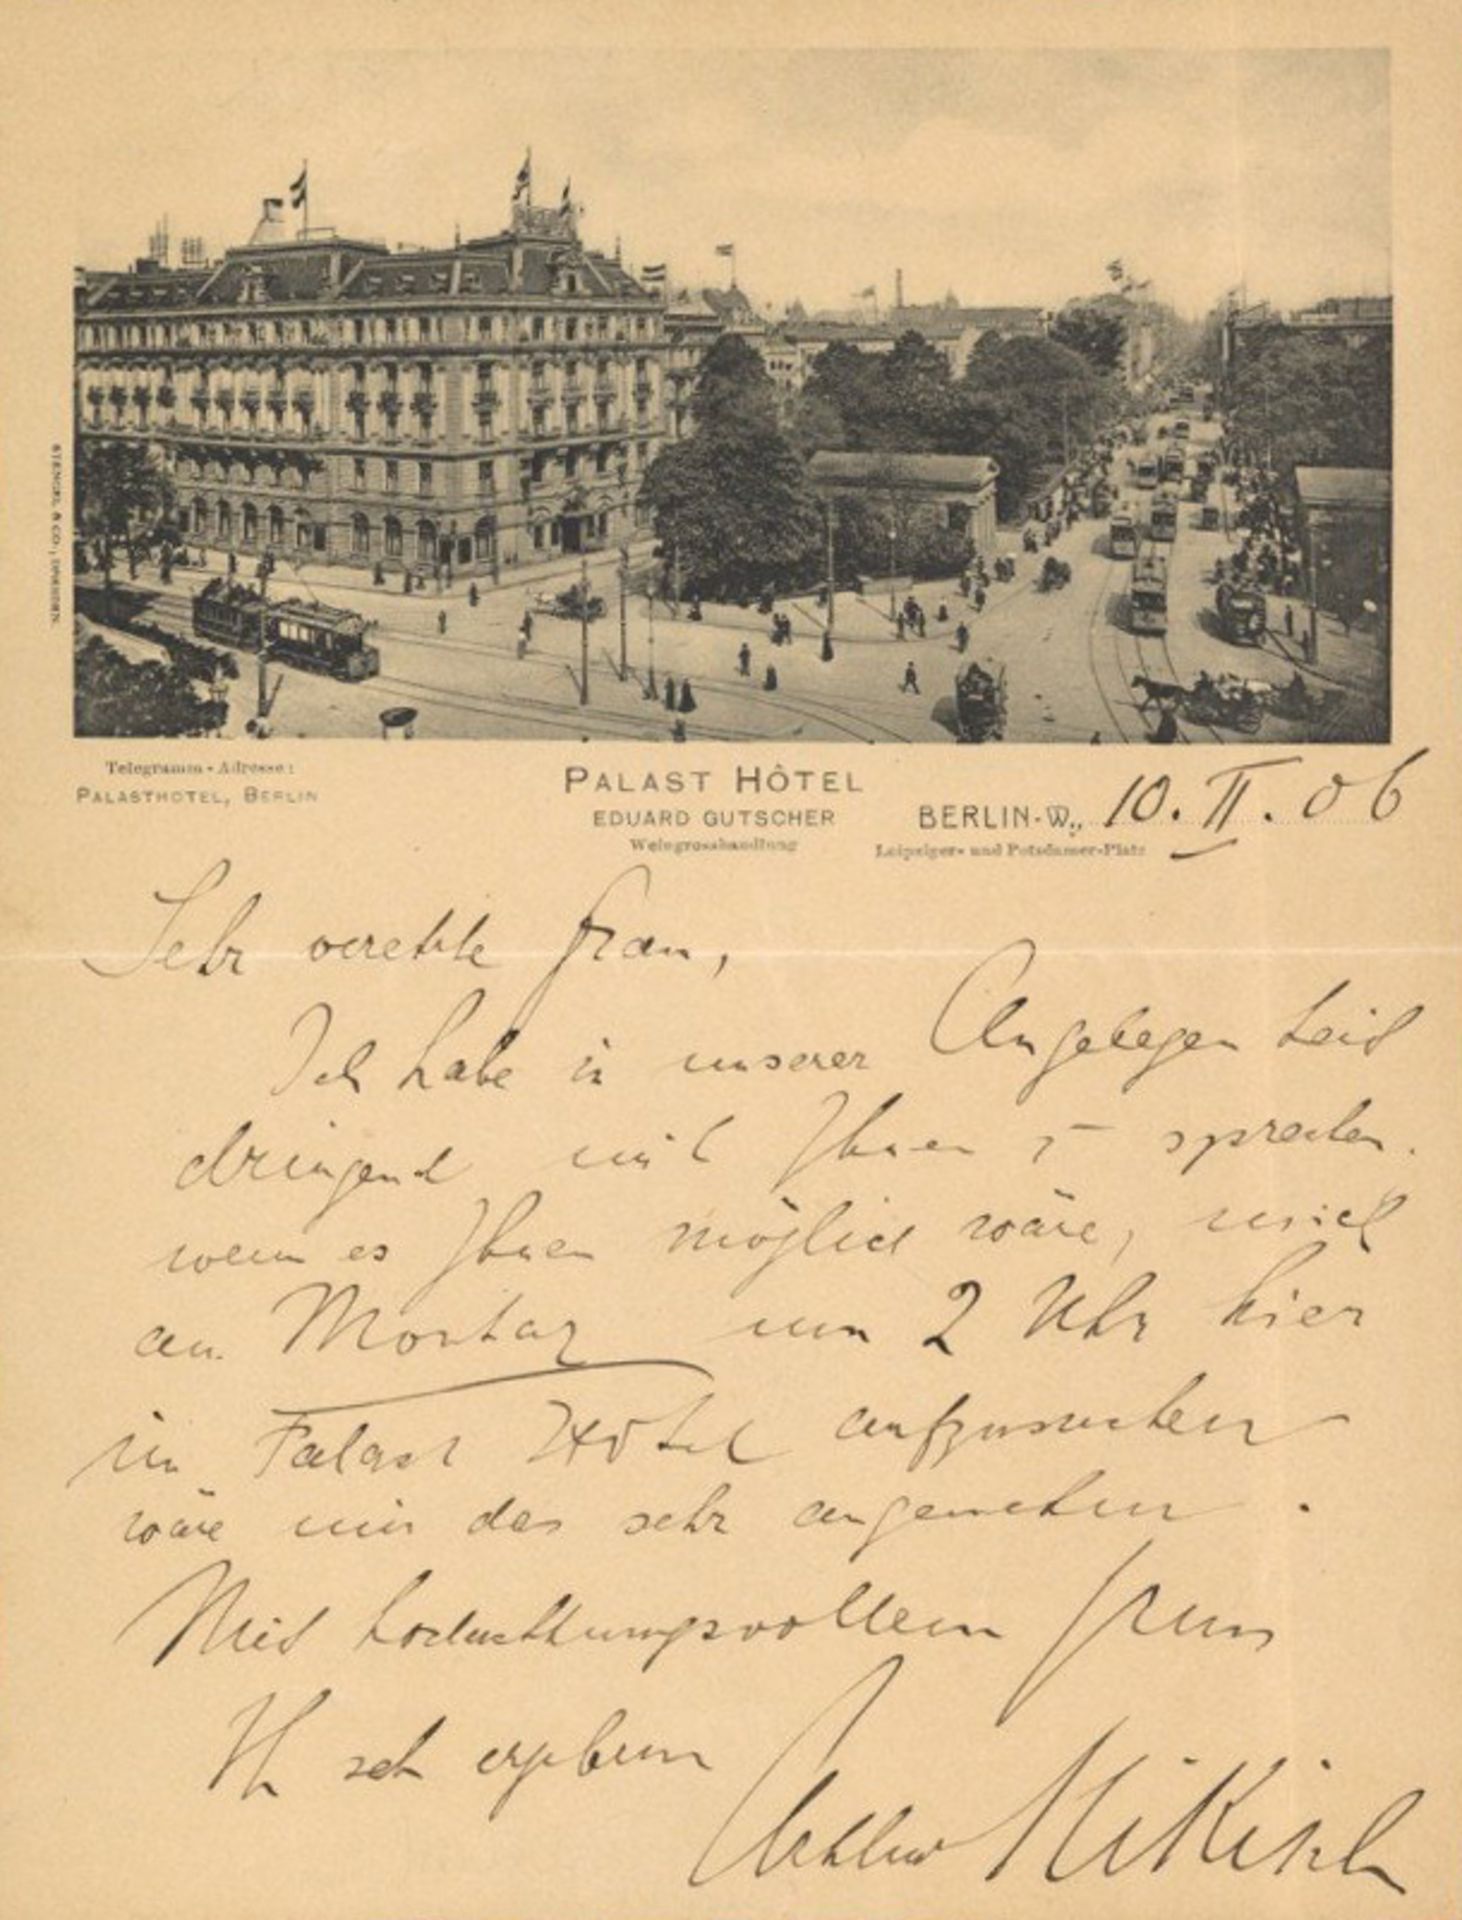 STENGEL & CO., DRESDEN.
Telegramm-Adresse:
PALASTHOTEL, BERLIN
PALAST HÔTEL
EDUARD GUTSCHER
Weingrosshandlung
BERLIN-W., 10. II. 06
Leipziger- und Potsdamer-Platz
Sehr verehrte Frau,
Ich habe in unserer Angelegenheit
dringend mit Ihnen z sprechen.
wenn es Ihnen möglich wäre, mich
am Montag um 2 Uhr hier
im Palast Hôtel aufzusuchen
wäre mir das sehr angenehm.
Mit hochachtungsvollem Gruss
Ihr sehr ergebener
Arthur Nikisch